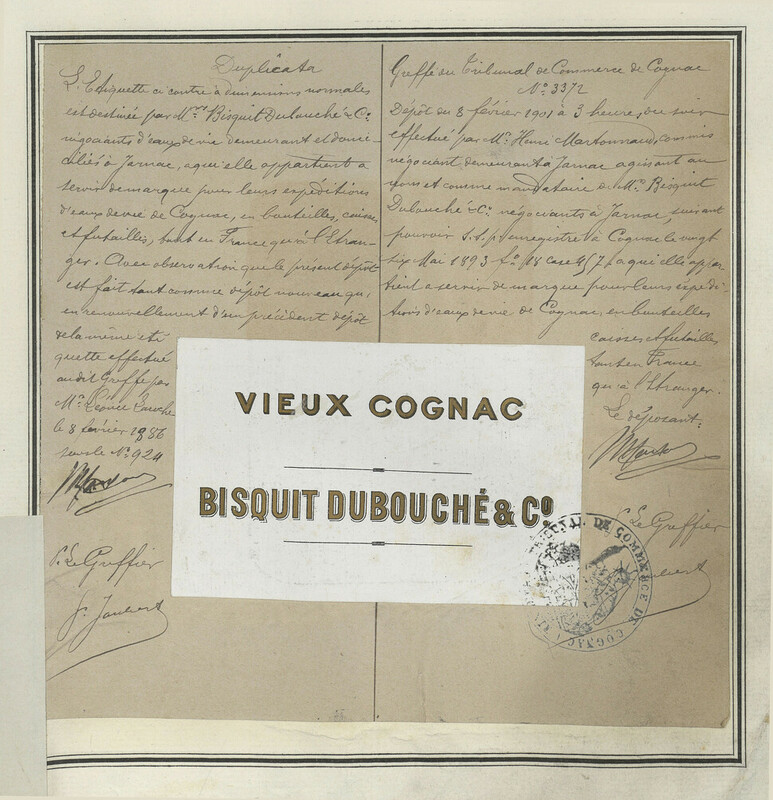 Duplicata
L'Etiquette ci contre à dimensions normales
est destinée par Mrs Bisquit Dubouché & Co
négociants d'eaux de vie demeurant et domi-
ciliés à Jarnac, a qui elle appartient a
servir de marque pour leurs expéditions
d'eaux de vie de Cognac, en bouteilles, caisses
et futailles, tant en France qu'à l'Etran-
ger. Avec observation que le présent dépôt
est fait tant comme dépôt nouveau qu'
en renouvellement d'un précédent dépôt
de la même éti
quette effectué
au dit Greffe par
Mr Léonce Laroche
le 8 février 1886
sous le No 924
P. Le Greffier
Greffe du Tribunal de Commerce de Cognac
No 3372
Dépôt du 8 février 1901 à 3 heures du soir
effectué par Mr Henri Martonnaud, commis
négociant demeurant à Jarnac agissant au
nom et comme mandataire de Mrs Bisquit
Dubouché & Co négociants à Jarnac, suivant
pouvoir s.s.p. enregistré à Cognac le vingt
six Mai 1893 fo 18 case 457 a qui elle appar
tient a servir de marque pour leurs expédi
tions d'eaux de vie de Cognac, en bouteilles
caisses et futailles
tant en France
qu'à l'Etranger.
Le déposant:
P. Le Greffier
VIEUX COGNAC
BISQUIT DUBOUCHÉ & Co
TRIBUNAL DE COMMERCE DE COGNAC